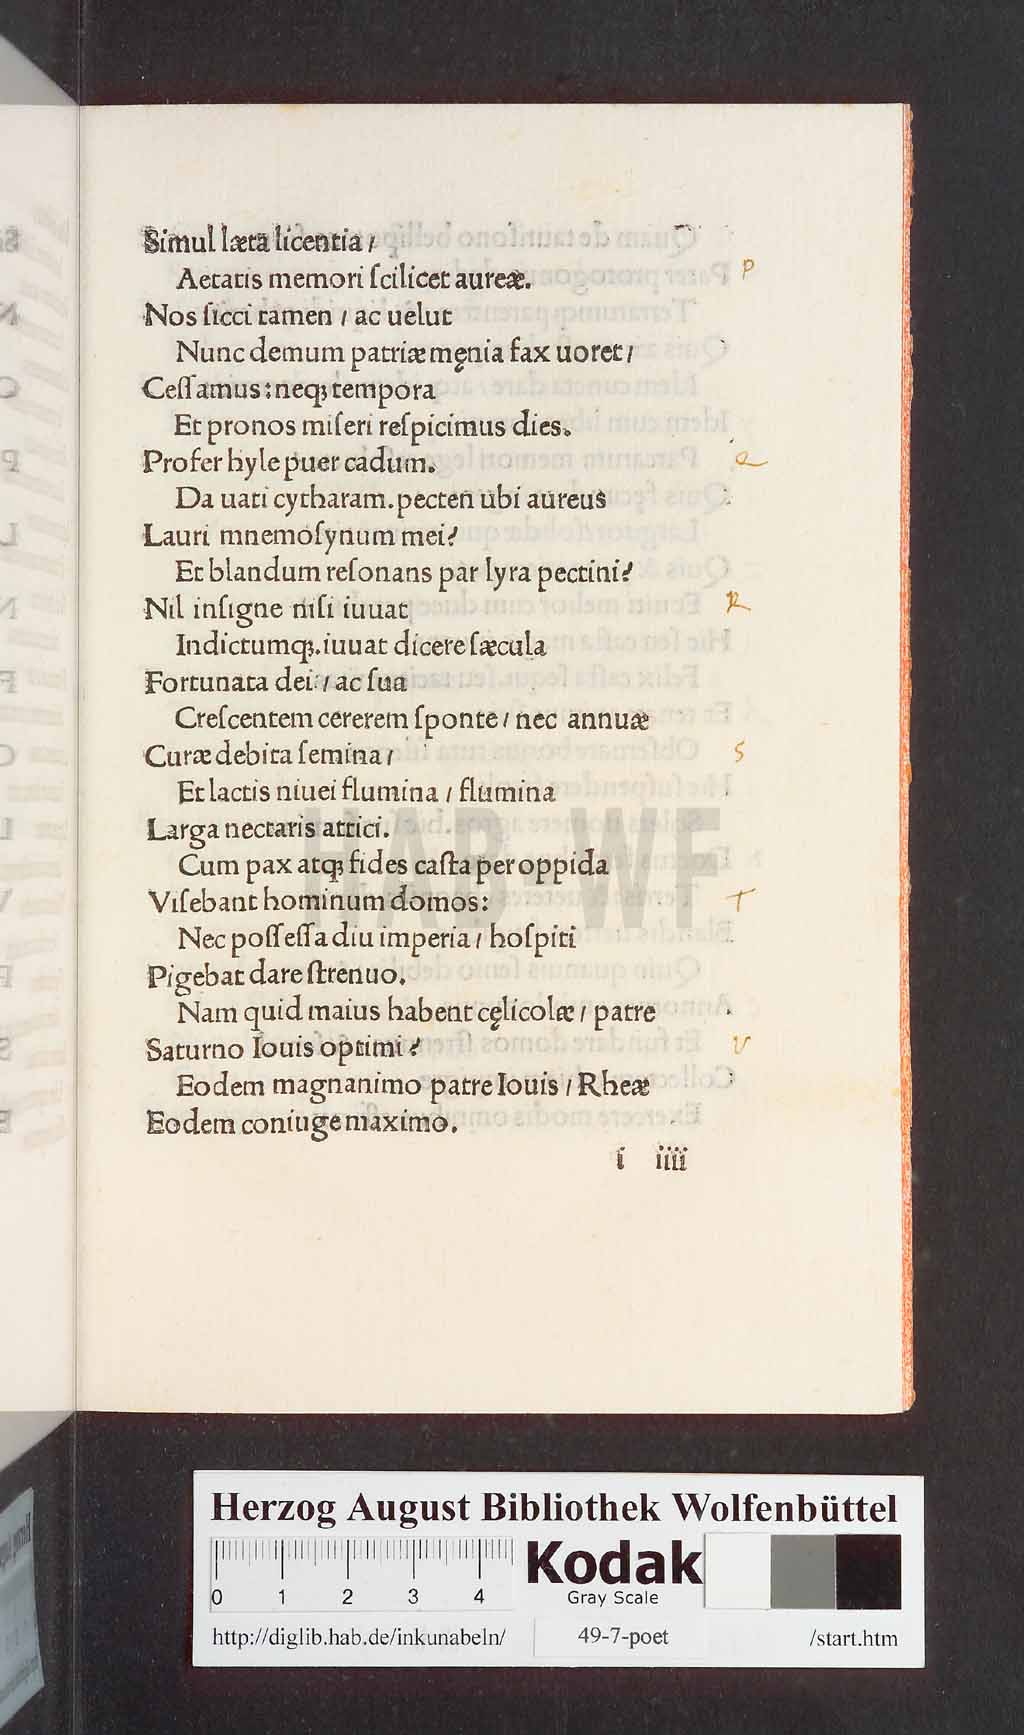 Simul læta licentia /
Aetatis memori ſcilicet aureæ.
P
Nos ſicci tamen / ac uelut
Nunc demum patriæ męnia fax uoret /
Ceſſamus: neqꝫ tempora
Et pronos miſeri reſpicimus dies.
Profer hyle puer cadum.
Q
Da uati cytharam. pecten ubi aureus
Lauri mnemoſynum mei?
Et blandum reſonans par lyra pectini?
Nil inſigne niſi iuuat
R
Indictumqꝫ. iuuat dicere ſæcula
Fortunata dei: / ac ſua
Creſcentem cererem ſponte / nec annuæ
Curæ debita ſemina /
S
Et lactis niuei flumina / flumina
Larga nectaris attici.
Cum pax atqꝫ fides caſta per oppida
Viſebant hominum domos:
T
Nec poſſeſſa diu imperia / hoſpiti
Pigebat dare ſtrenuo.
Nam quid maius habent cęlicolæ / patre
Saturno Iouis optimi?
V
Eodem magnanimo patre Iouis / Rheæ
Eodem coniuge maximo.
i iiii
HAB-WF
Herzog August Bibliothek Wolfenbüttel
0 1 2 3 4
Kodak
Gray Scale
http://diglib.hab.de/inkunabeln/ 49-7-poet /start.htm